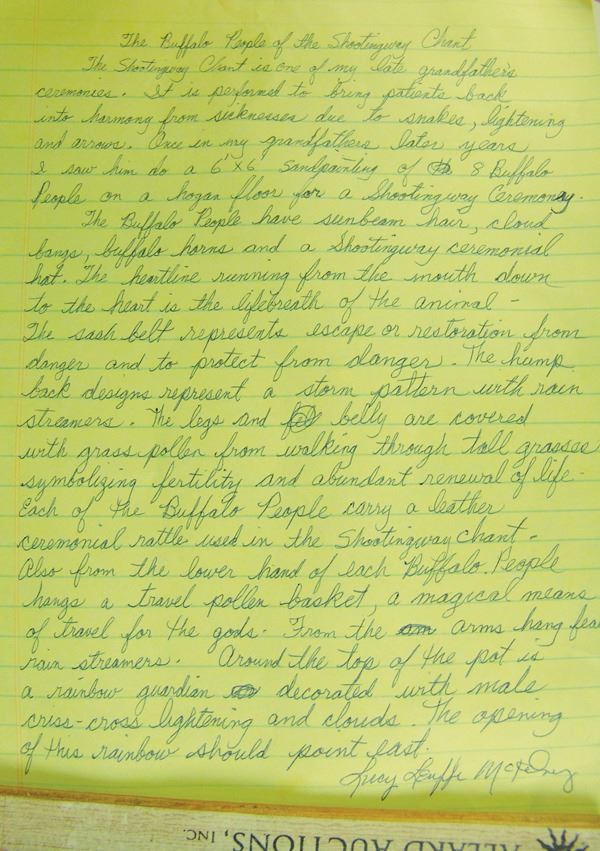 The Buffalo People of the Shootingway Chant
The Shootingway Chant is one of my late grandfather's
ceremonies. It is performed to bring patients back
into harmony from sicknesses due to snakes, lightening
and arrows. Once in my grandfathers later years
I saw him do a 6' x 6' Sandpainting of 8 Buffalo
People on a hogan floor for a Shootingway Ceremoney.
The Buffalo People have sunbeam hair, cloud
bangs, buffalo horns and a Shootingway ceremonial
hat. The heartline running from the mouth down
to the heart is the lifebreath of the animal -
The sash belt represents escape or restoration from
danger and to protect from danger. The hump
back designs represent a storm pattern with rain
streamers. The legs and belly are covered
with grass pollen from walking through tall grasses
symbolizing fertility and abundant renewal of life.
Each of the Buffalo People carry a leather
ceremonial rattle used in the Shootingway chant -
Also from the lower hand of each Buffalo People
hangs a travel pollen basket, a magical means
of travel for the gods. From the arms hang
rain streamers. Around the top of the pot is
a rainbow guardian decorated with male
criss-cross lightening and clouds. The opening
of this rainbow should point east.
Lucy Leuppe McKelvey
ALLARD AUCTIONS, INC.